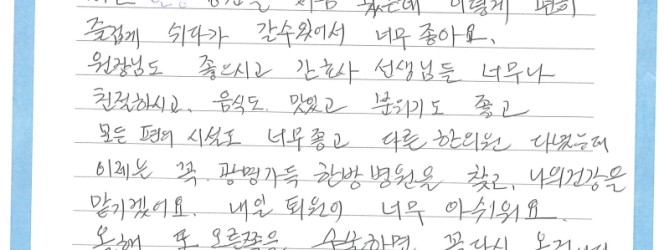 처음 왔는데 이렇게 편히
즐겁게 쉬다가 갈수있어서 너무 좋아요.
원장님도 좋으시고 간호사 선생님들 너무나
친절하시고, 음식도 맛있고 분위기도 좋고
모든 편의 시설도 너무좋고 다른 한의원 다녔는데
이제는 꼭 광명가득 한방병원을 찾고, 나의건강을
맡기겠어요. 내일 퇴원이 너무 아쉬워요.
올해 또 오른쪽을 수술하면 꼭다시